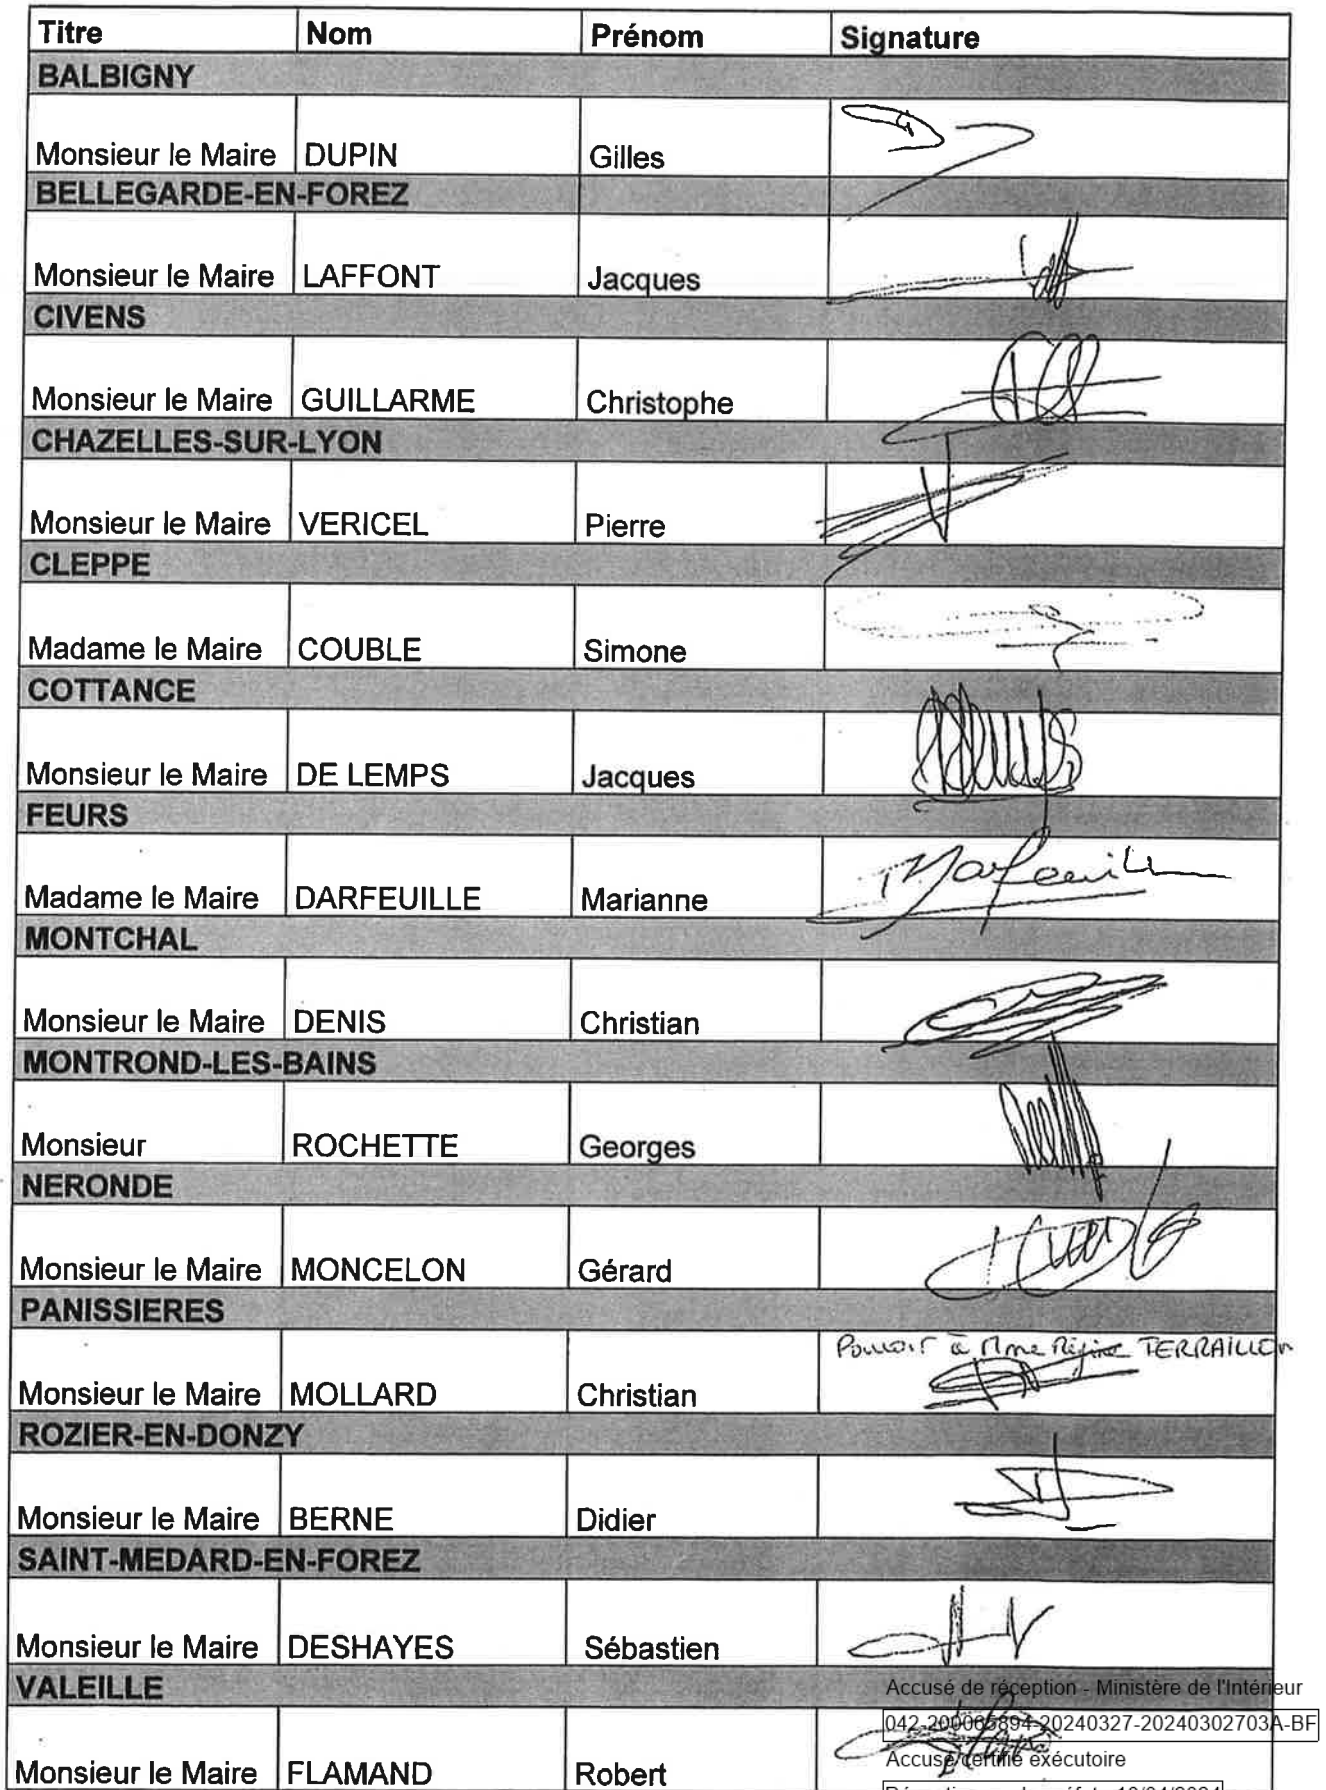 Titre Nom Prénom Signature
BALBIGNY
Monsieur le Maire DUPIN Gilles
BELLEGARDE-EN-FOREZ
Monsieur le Maire LAFFONT Jacques
CIVENS
Monsieur le Maire GUILLARME Christophe
CHAZELLES-SUR-LYON
Monsieur le Maire VERICEL Pierre
CLEPPE
Madame le Maire COUBLE Simone
COTTANCE
Monsieur le Maire DE LEMPS Jacques
FEURS
Madame le Maire DARFEUILLE Marianne
MONTCHAL
Monsieur le Maire DENIS Christian
MONTROND-LES-BAINS
Monsieur ROCHETTE Georges
NERONDE
Monsieur le Maire MONCELON Gérard
PANISSIERES
Pouvoir à Mme Régine TERRAILLON
Monsieur le Maire MOLLARD Christian
ROZIER-EN-DONZY
Monsieur le Maire BERNE Didier
SAINT-MEDARD-EN-FOREZ
Monsieur le Maire DESHAYES Sébastien
VALEILLE
Accusé de réception - Ministère de l'Intérieur
042-200065894-20240327-20240302703A-BF
Accusé certifié exécutoire
Monsieur le Maire FLAMAND Robert